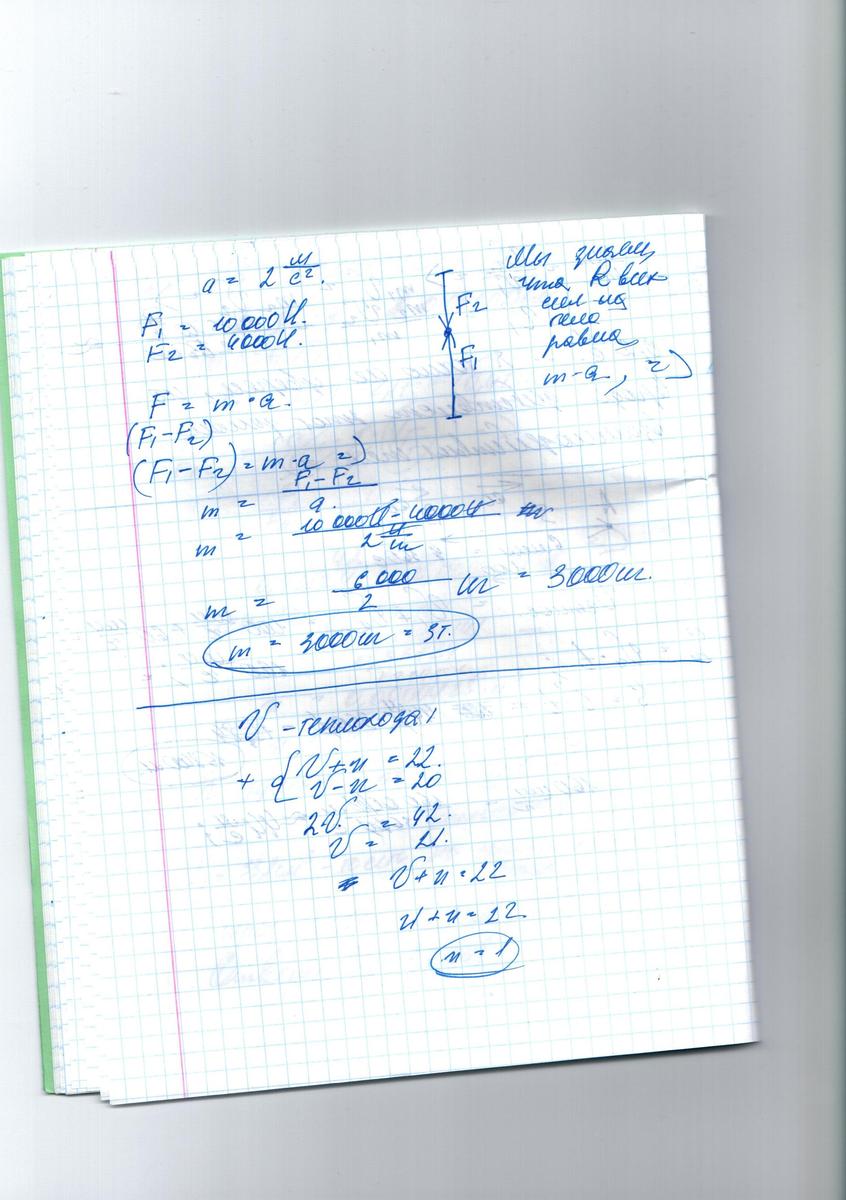 a = 2 м/с².
F₁ = 10 000 Н.
F₂ = 4000 Н.
F₂
F₁
Мы знаем
что R всех
сил на
тело
равна
m·a, =)
F = m·a.
(F₁-F₂)
(F₁-F₂) = m·a =)
m = F₁-F₂ / a.
m = 10 000Н - 4000Н / 2 Н/кг
m = 6 000 / 2 кг = 3000кг.
m = 3000кг = 3т.
V - теплохода,
+ { V+u = 22.
V-u = 20
2V = 42.
V = 21.
V+u = 22
21+u = 22.
u = 1